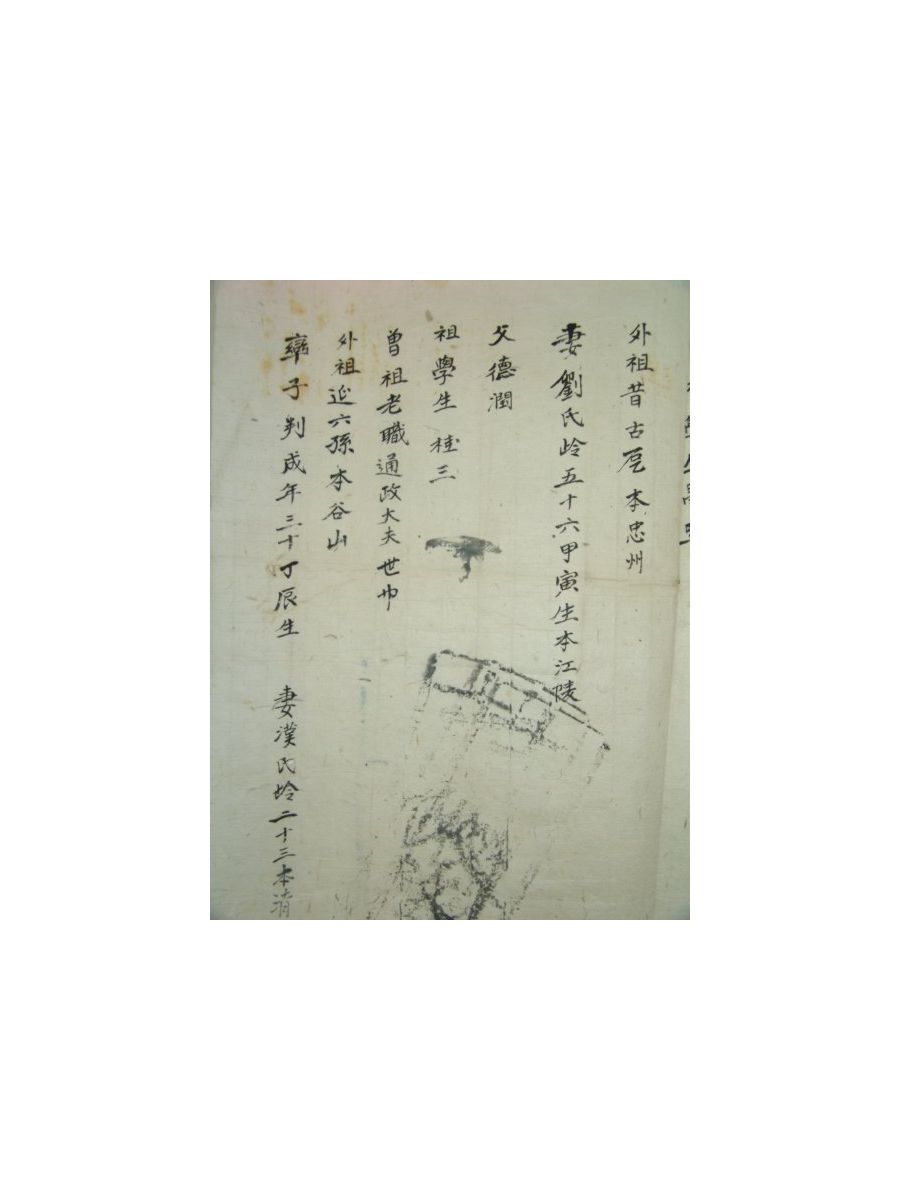 外祖昔古㐨本忠州
妻劉氏岺五十六甲寅生本江陵
父德潤
祖學生 桂三
曾祖老職通政大夫世
外祖延六孫本谷山
率子判成年三十丁辰生 妻漢氏岺二十三本淸